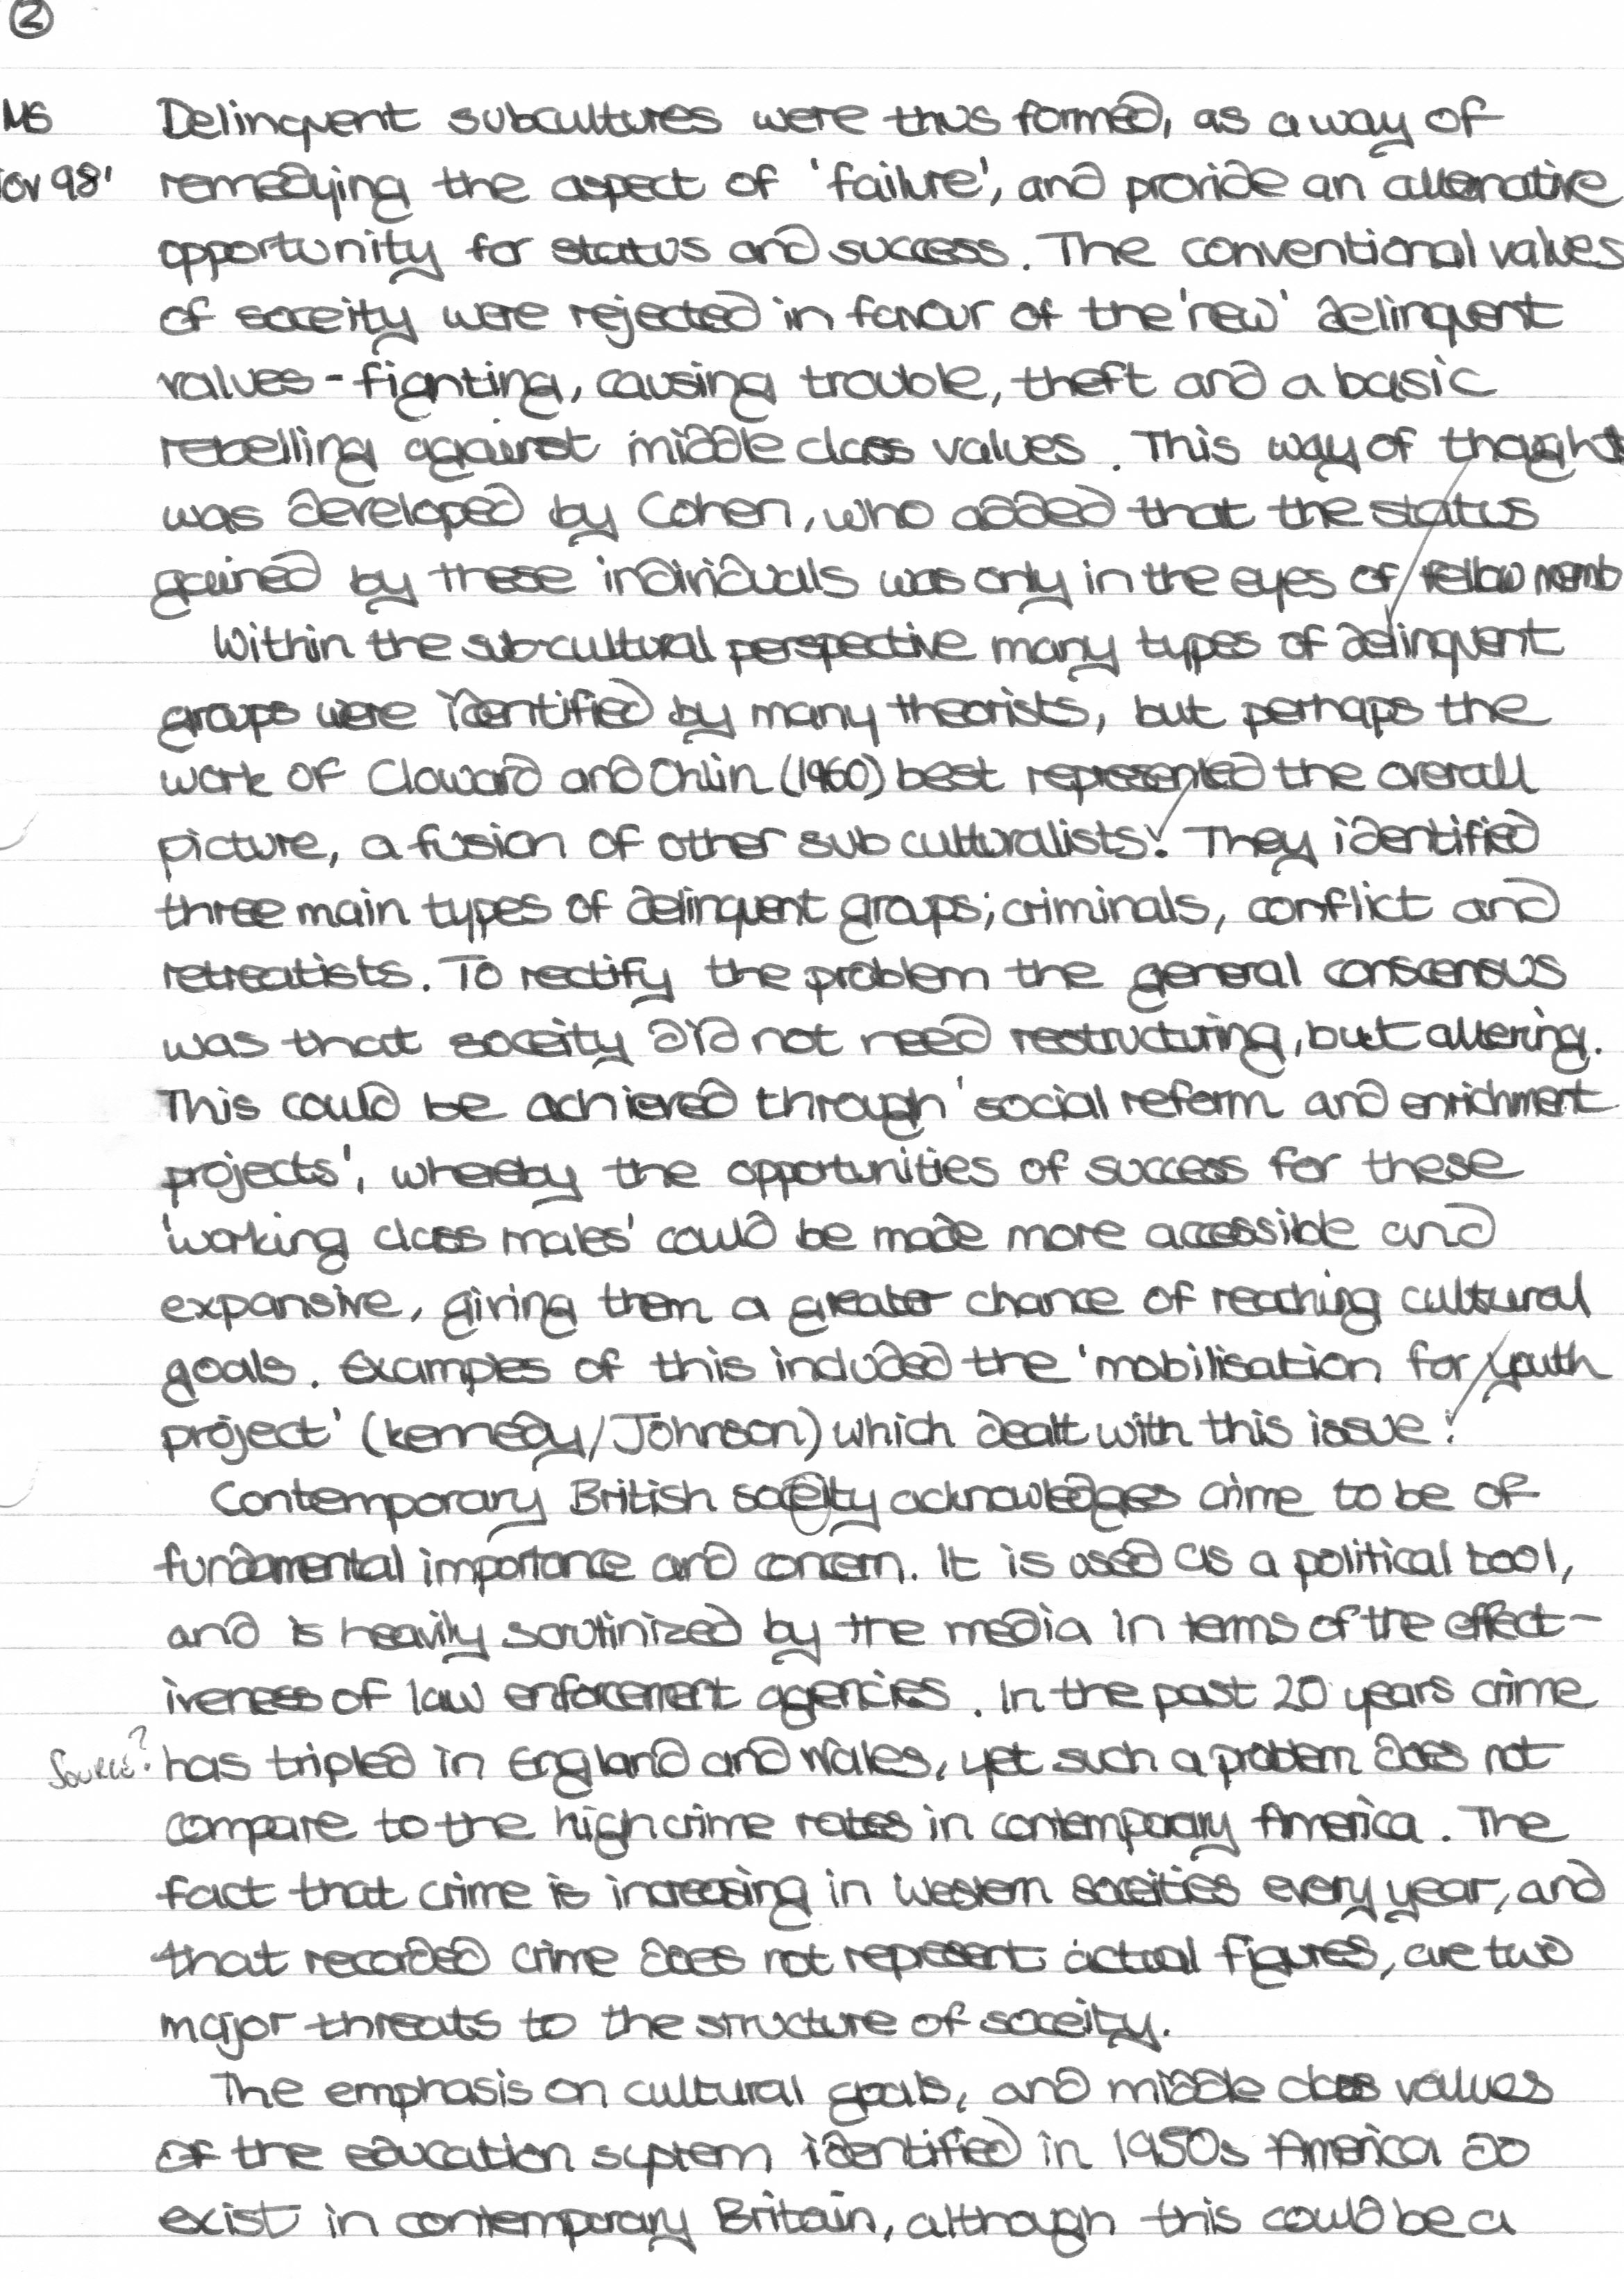 ②
MS
ov 98'
Delinquent subcultures were thus formed, as a way of
remedying the aspect of 'failure', and provide an alternative
opportunity for status and success. The conventional values
of soceity were rejected in favour of the 'new' delinquent
values - fighting, causing trouble, theft and a basic
rebelling against middle class values. This way of thought
was developed by Cohen, who added that the status
gained by these individuals was only in the eyes of fellow memb
Within the sub-cultural perspective many types of delinquent
groups were identified by many theorists, but perhaps the
work of Cloward and Ohlin (1960) best represented the overall
picture, a fusion of other sub culturalists. They identified
three main types of delinquent groups; criminals, conflict and
retreatists. To rectify the problem the general conscensus
was that soceity did not need restructuring, but altering.
This could be achieved through 'social reform and enrichment
projects', whereby the opportunities of success for these
'working class males' could be made more accessible and
expansive, giving them a greater chance of reaching cultural
goals. Examples of this included the 'mobilisation for youth
project' (kennedy/Johnson) which dealt with this issue.
Contemporary British soceity acknowledges crime to be of
fundamental importance and concern. It is used as a political tool,
and is heavily scrutinized by the media in terms of the effect-
iveness of law enforcement agencies. In the past 20 years crime
Source? has tripled in England and Wales, yet such a problem does not
compare to the high crime rates in contemporary America. The
fact that crime is increasing in Western soceities every year, and
that recorded crime does not represent actual figures, are two
major threats to the structure of soceity.
The emphasis on cultural goals, and middle class values
of the education system identified in 1950s America do
exist in contemporary Britain, although this could be a